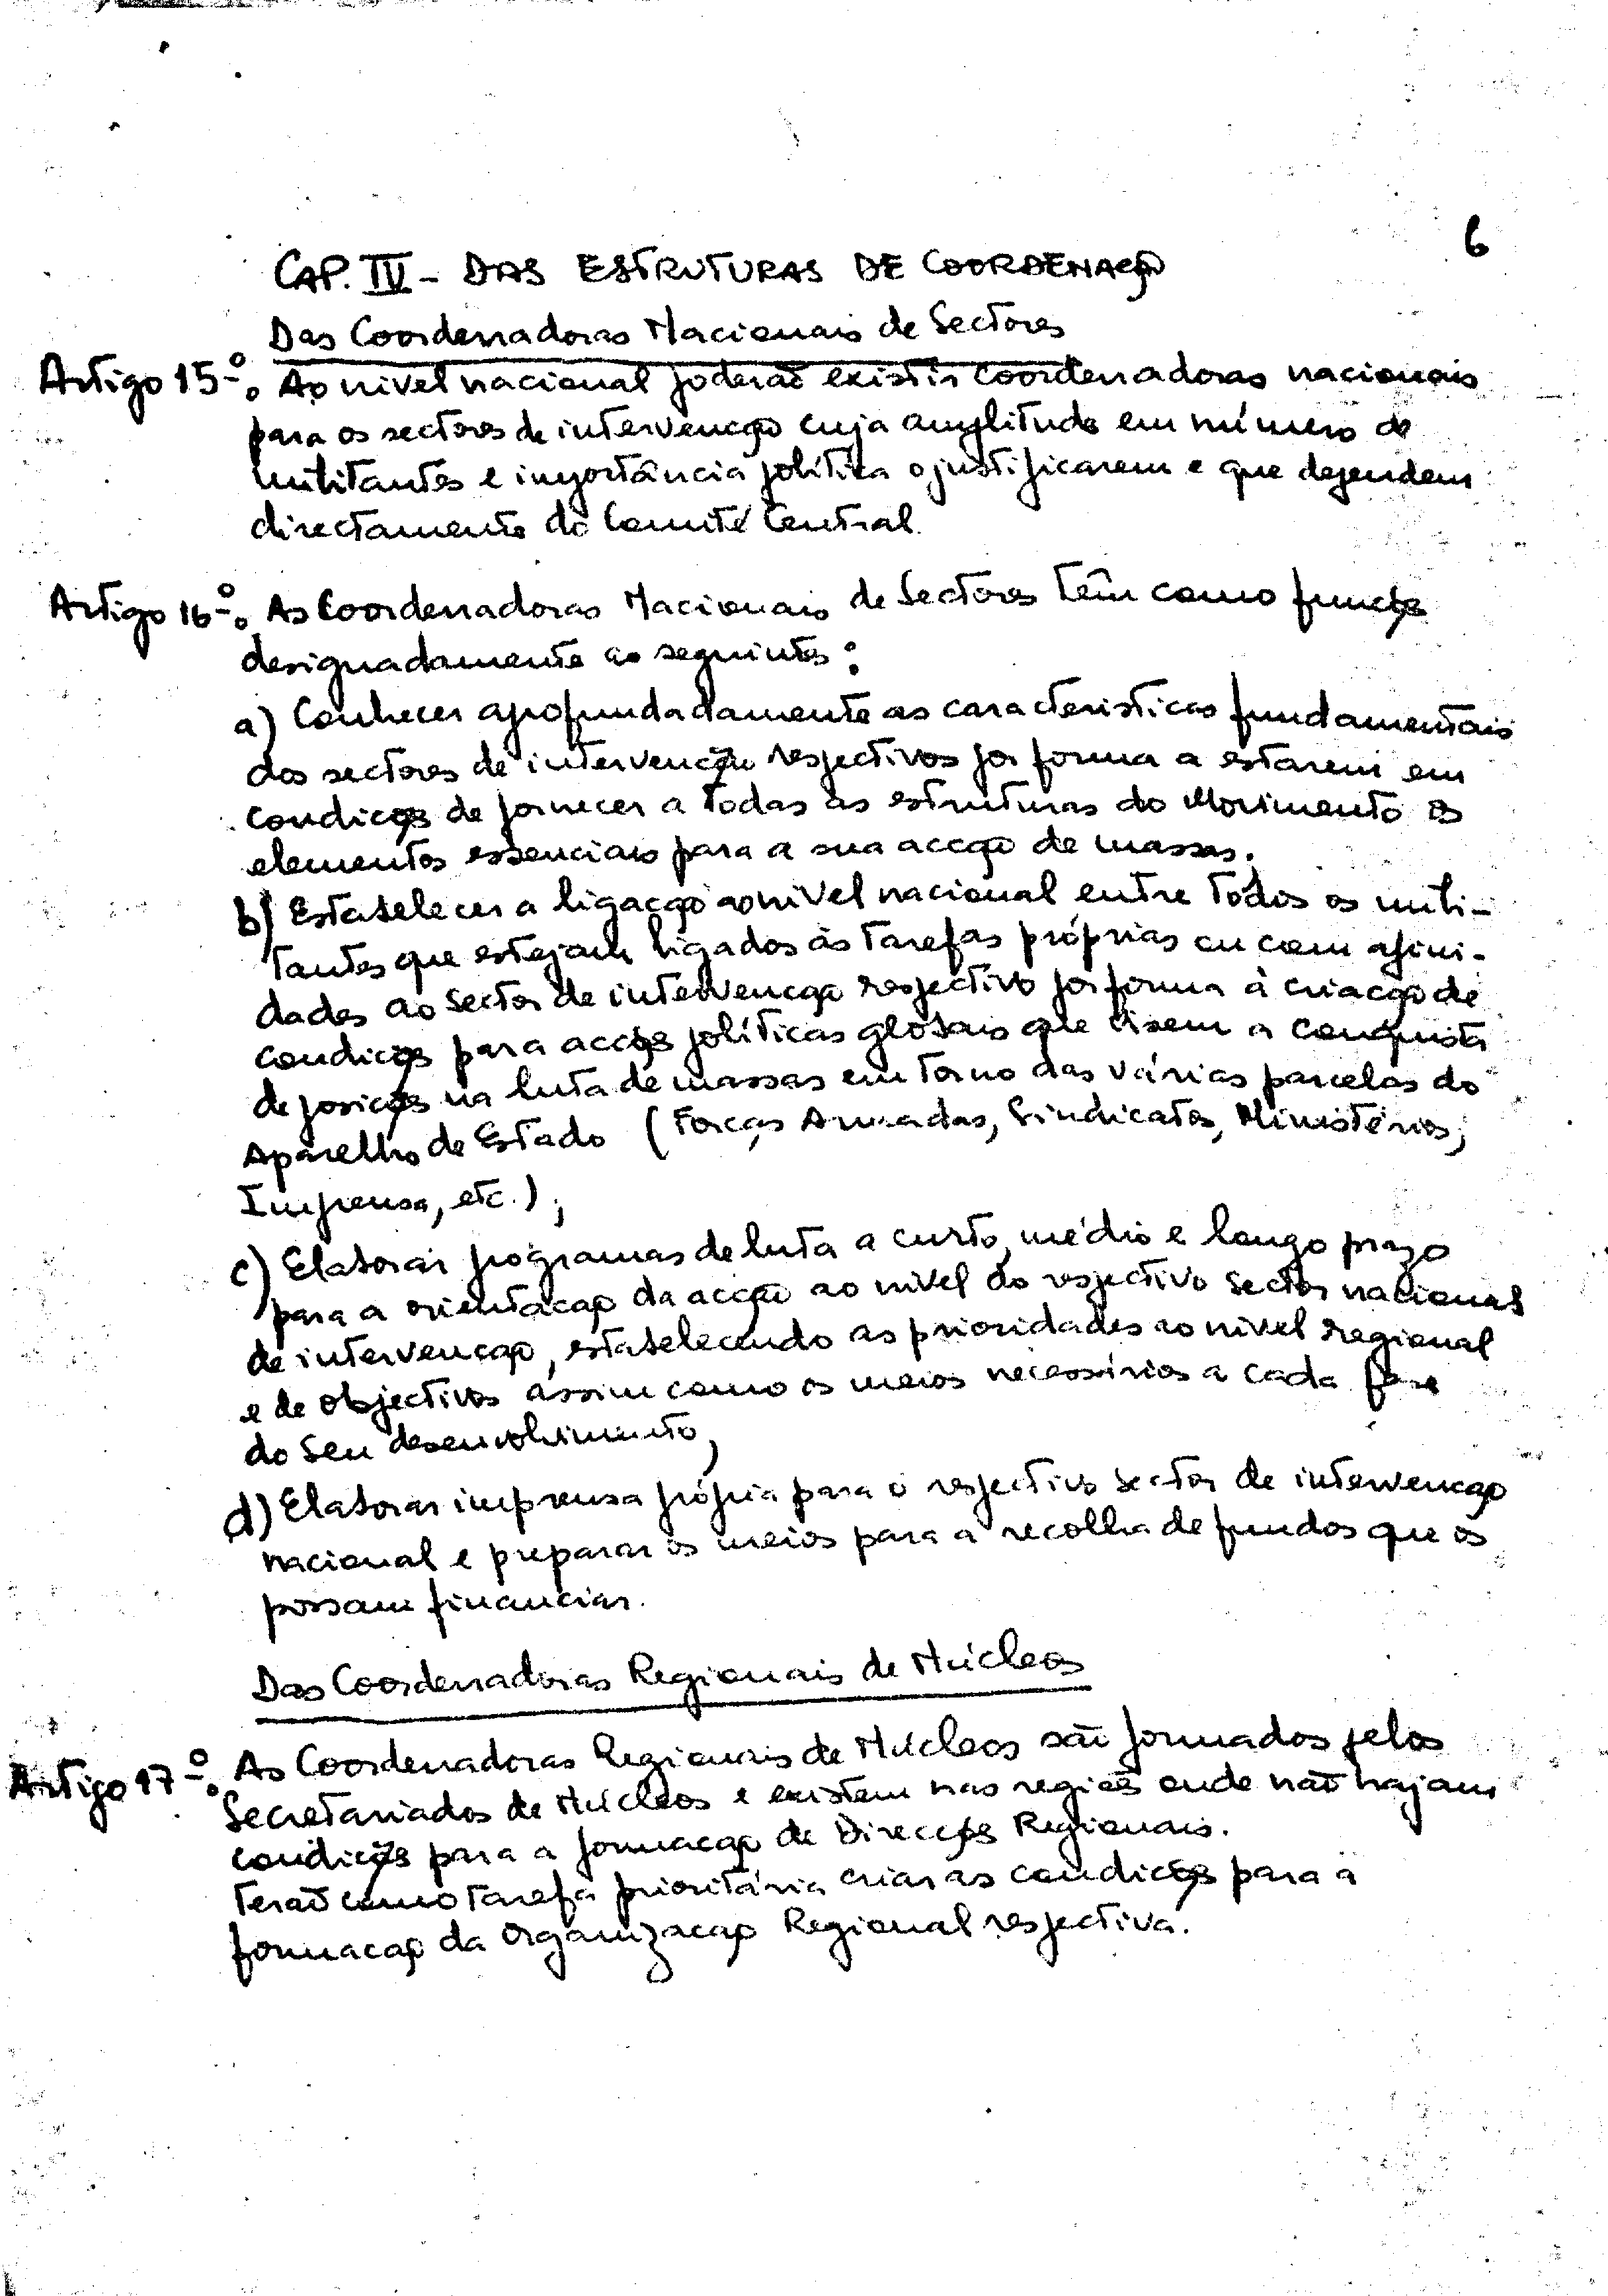 6
CAP. IV - DAS ESTRUTURAS DE COORDENAÇÃO
Das Coordenadoras Nacionais de Sectores
Artigo 15º. Ao nivel nacional poderão existir coordenadoras nacionais
para os sectores de intervenção cuja amplitude em número de
militantes e importância política o justificarem e que dependem
directamente do Comité Central.
Artigo 16º. As Coordenadoras Nacionais de Sectores têm como funções
designadamente as seguintes:
a) Conhecer aprofundadamente as caracteristicas fundamentais
dos sectores de intervenção respectivos por forma a estarem em
condições de fornecer a todas as estruturas do Movimento os
elementos essenciais para a sua acção de massas.
b) Estabelecer a ligação ao nivel nacional entre todos os mili-
tantes que estejam ligados às tarefas próprias ou com afini-
dades ao sector de intervenção respectivo por forma à criação de
condições para acções políticas globais que visem a conquista
de posições na luta de massas em torno das várias parcelas do
Aparelho de Estado (Forças Armadas, Sindicatos, Ministérios,
Imprensa, etc.);
c) Elaborar programas de luta a curto, médio e longo prazo
para a orientação da acção ao nivel do respectivo sector nacional
de intervenção, estabelecendo as prioridades ao nivel regional
e de objectivos assim como os meios necessários a cada fase
do seu desenvolvimento;
d) Elaborar imprensa própria para o respectivo sector de intervenção
nacional e preparar os meios para a recolha de fundos que os
possam financiar.
Das Coordenadoras Regionais de Núcleos
Artigo 17º. As Coordenadoras Regionais de Núcleos são formados pelos
Secretariados de Núcleos e existem nas regiões onde não hajam
condições para a formação de Direcções Regionais.
Terão como tarefa prioritária criar as condições para a
formação da Organização Regional respectiva.